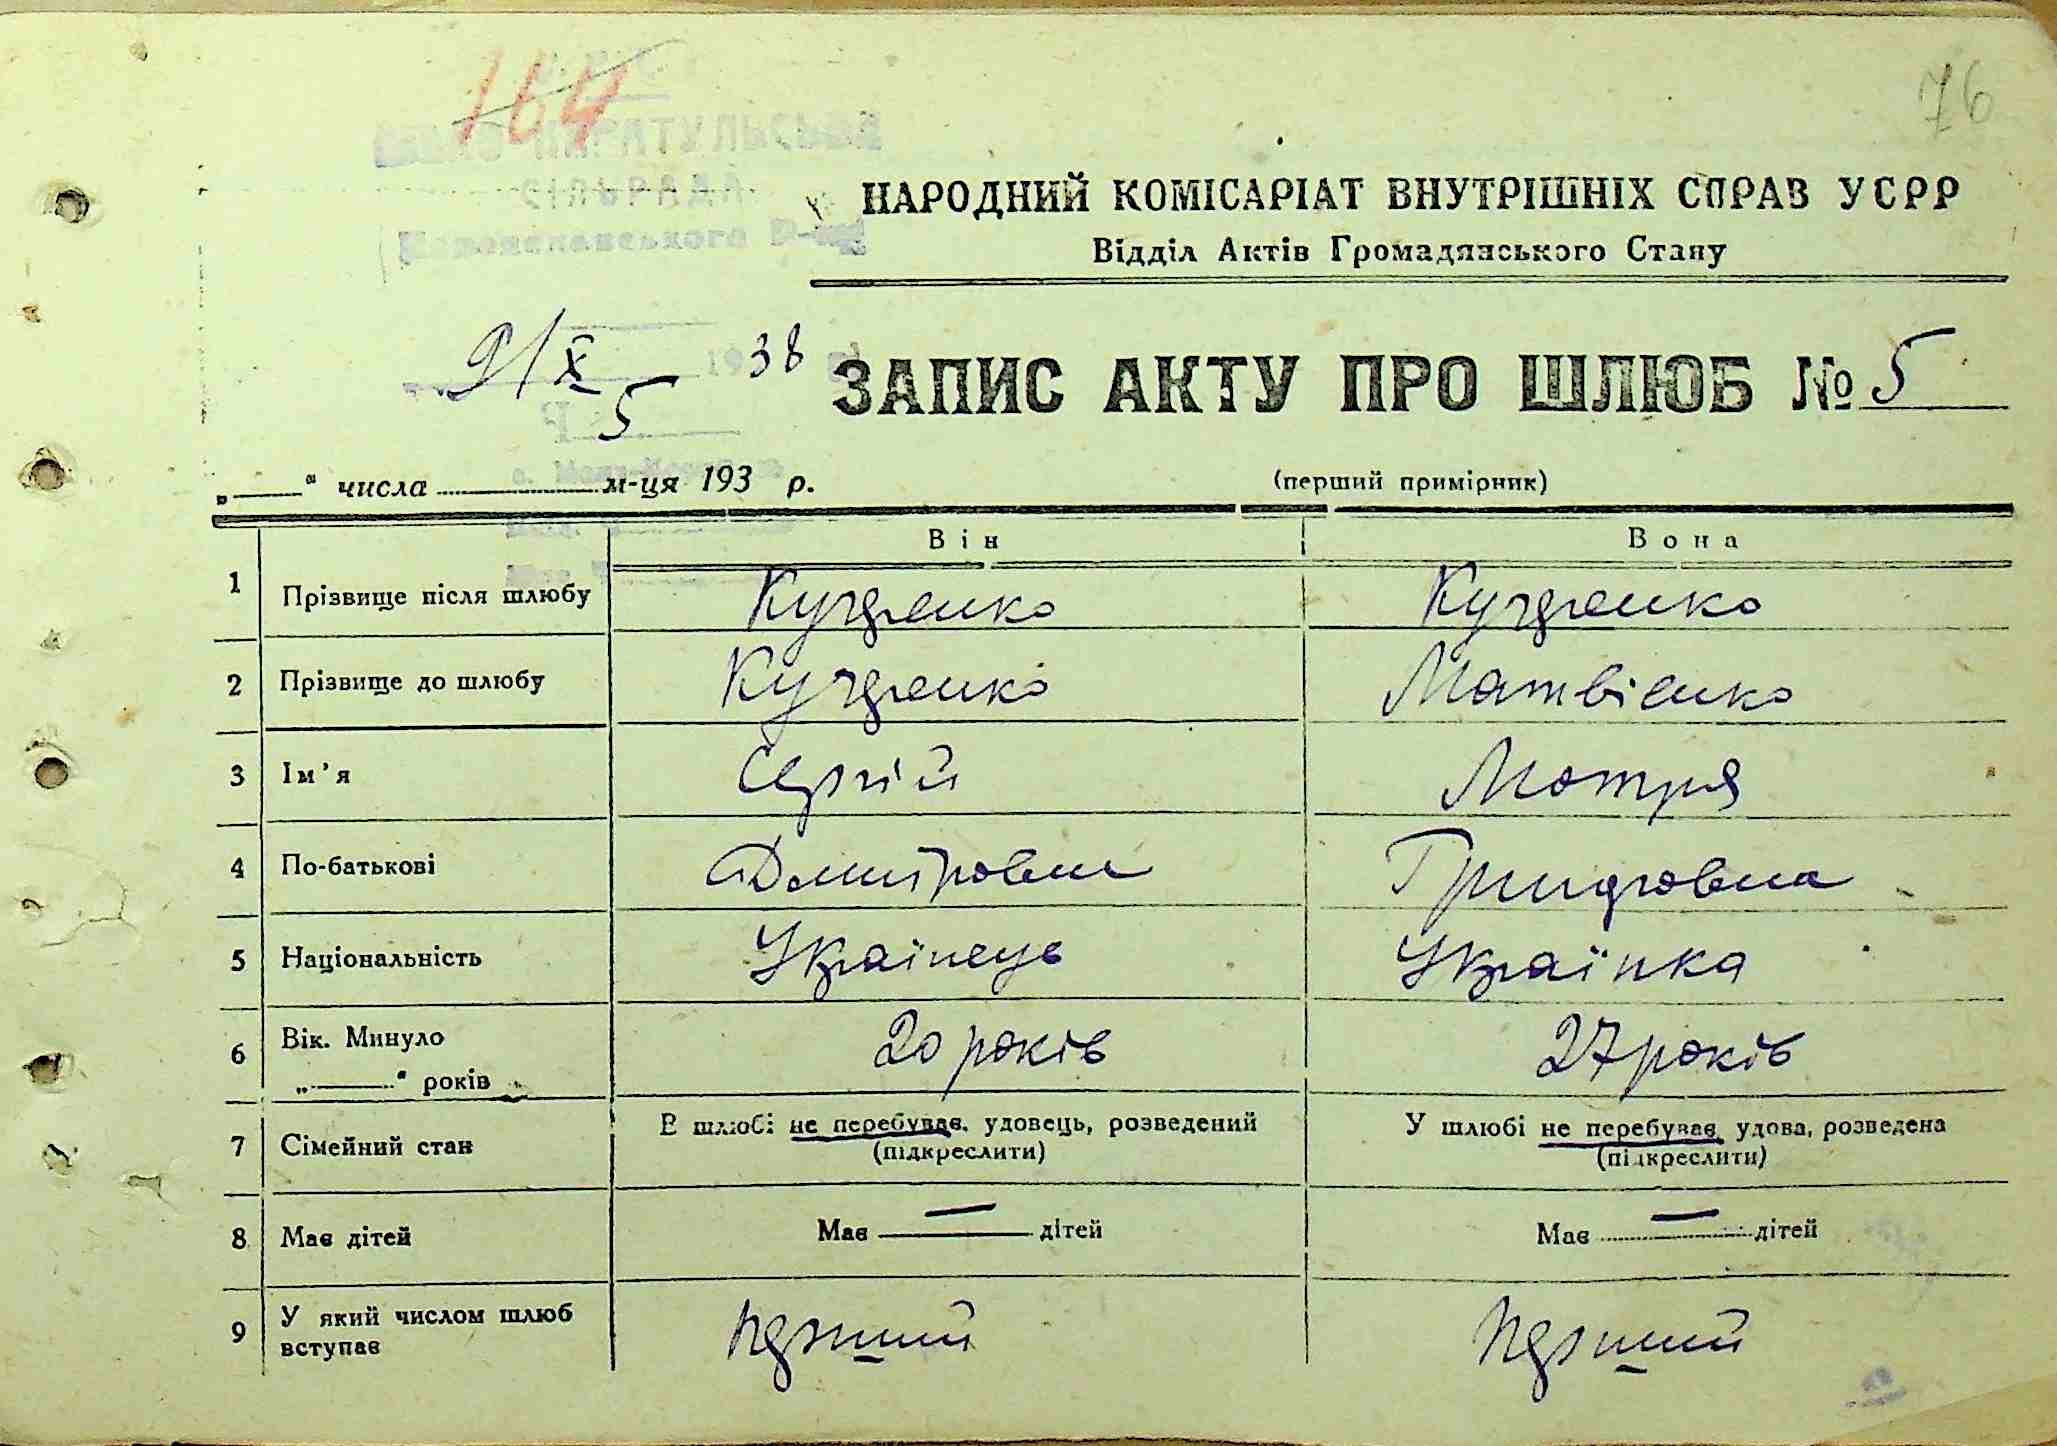 164
76
СІЛЬРАДА
НАРОДНИЙ КОМІСАРІАТ ВНУТРІШНІХ СПРАВ УСРР
Відділ Актів Громадянського Стану
9/X 1938
5
ЗАПИС АКТУ ПРО ШЛЮБ № 5
„ “ числа м-ця 193 р.
(перший примірник)
Він Вона
1 Прізвище після шлюбу Куценко Куценко
2 Прізвище до шлюбу Куценко Матвієнко
3 Ім'я Сергій Мотря
4 По-батькові Дмитрович Григровна
5 Національність Українець Українка
6 Вік. Минуло
„ “ років 20 років 27 років
7 Сімейний стан В шлюбі не перебував, удовець, розведений
(підкреслити) У шлюбі не перебував, удова, розведена
(підкреслити)
8 Має дітей Має — дітей Має — дітей
9 У який числом шлюб
вступає перший перший